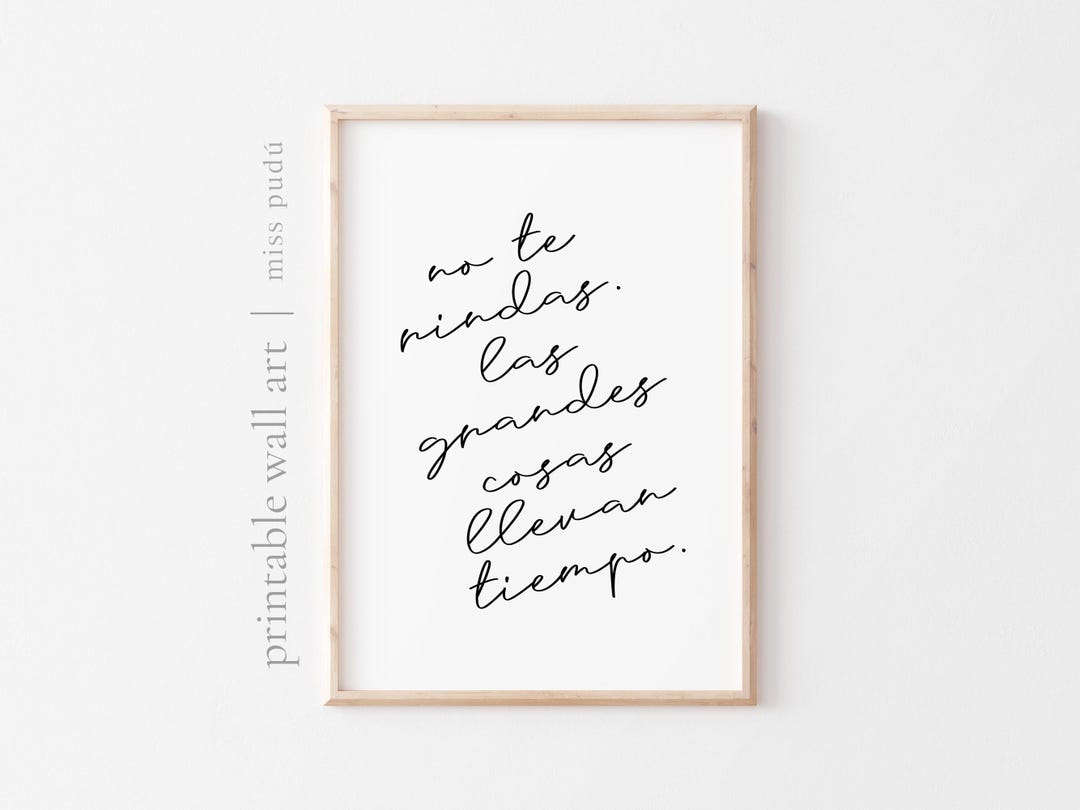 printable wall art | miss pudú
no te
rindas.
las
grandes
cosas
llevan
tiempo.